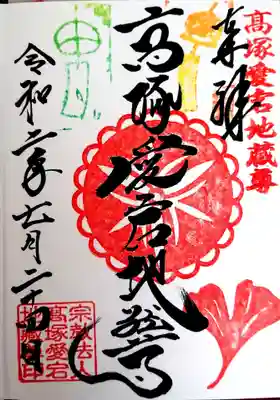 高塚愛宕地蔵尊
奉拝
高塚愛宕地蔵尊
令和二年七月二十四日
宗教法人
高塚愛宕
地蔵尊印